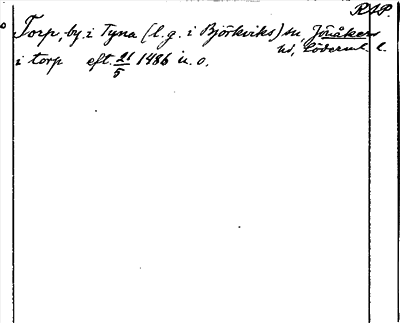 RAP.
Torp, by. i Tyna (l. g. i Björkviks) sn, Jönåkers
hd, Söderml. l.
i torp eft. 21/5 1486 u. o.